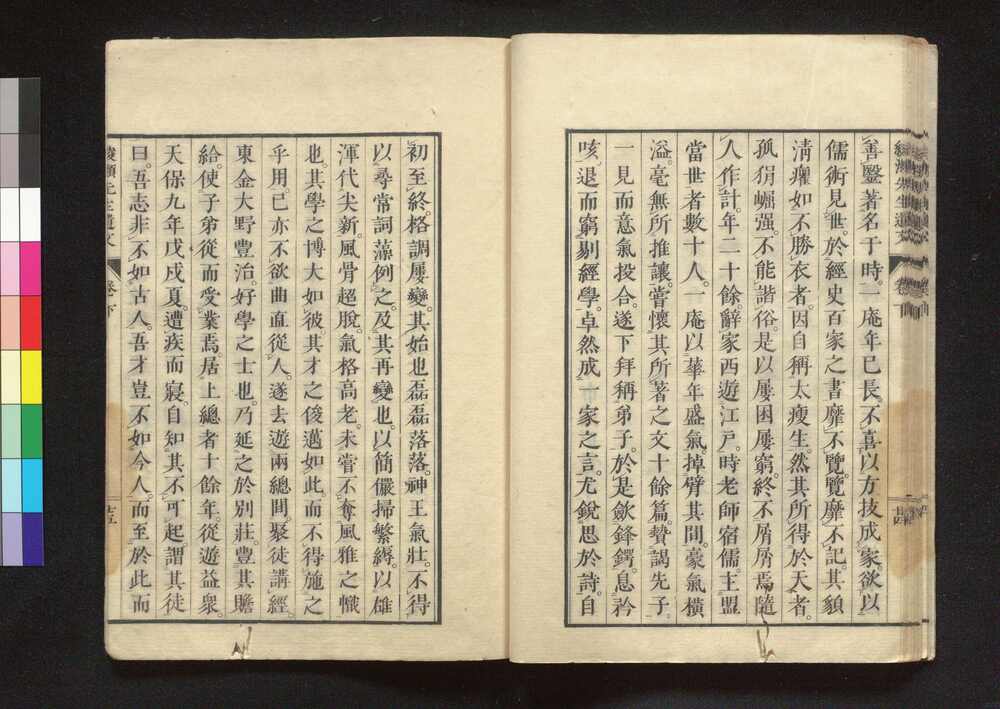 善毉著名于時。一庵年已長。不喜以方技成家欲以
儒術見世。於經史百家之書靡不覽。覽靡不記其貌
淸癯如不勝衣者。因自稱太瘦生。然其所得於天者。
孤狷崛强。不能諧俗。是以屢困屢窮。終不屑屑焉隨
人作計。年二十餘辭家西遊江戸。時老師宿儒主盟
當世者數十人。一庵以華年盛氣。掉臂其間。豪氣橫
溢。毫無所推讓。嘗懷其所著之文十餘篇。贄謁先子。
一見而意氣投合。遂下拜稱弟子。於是歛鋒鍔。息矜
咳。退而窮剔經學。卓然成一家之言。尤銳思於詩。自
初至終。格調屢變。其始也磊磊落落。神王氣壯。不得
以尋常詞藻例之。及其再變也。以簡儼掃繁縟。以雄
渾代尖新。風骨超脫。氣格高老。未嘗不奪風雅之幟
也。其學之博大如彼。其才之俊邁如此。而不得施之
乎用。己亦不欲曲直從人。遂去遊兩總間。聚徒講經。
東金大野豊治。好學之士也。乃延之於別莊。豊其贍
給。使子弟從而受業焉。居上總者十餘年。從遊益衆。
天保九年戊戌夏。遭疾而寢。自知其不可起。謂其徒
曰。吾志非不如古人。吾才豈不如今人。而至於此而
先生遺文 卷下 廿五